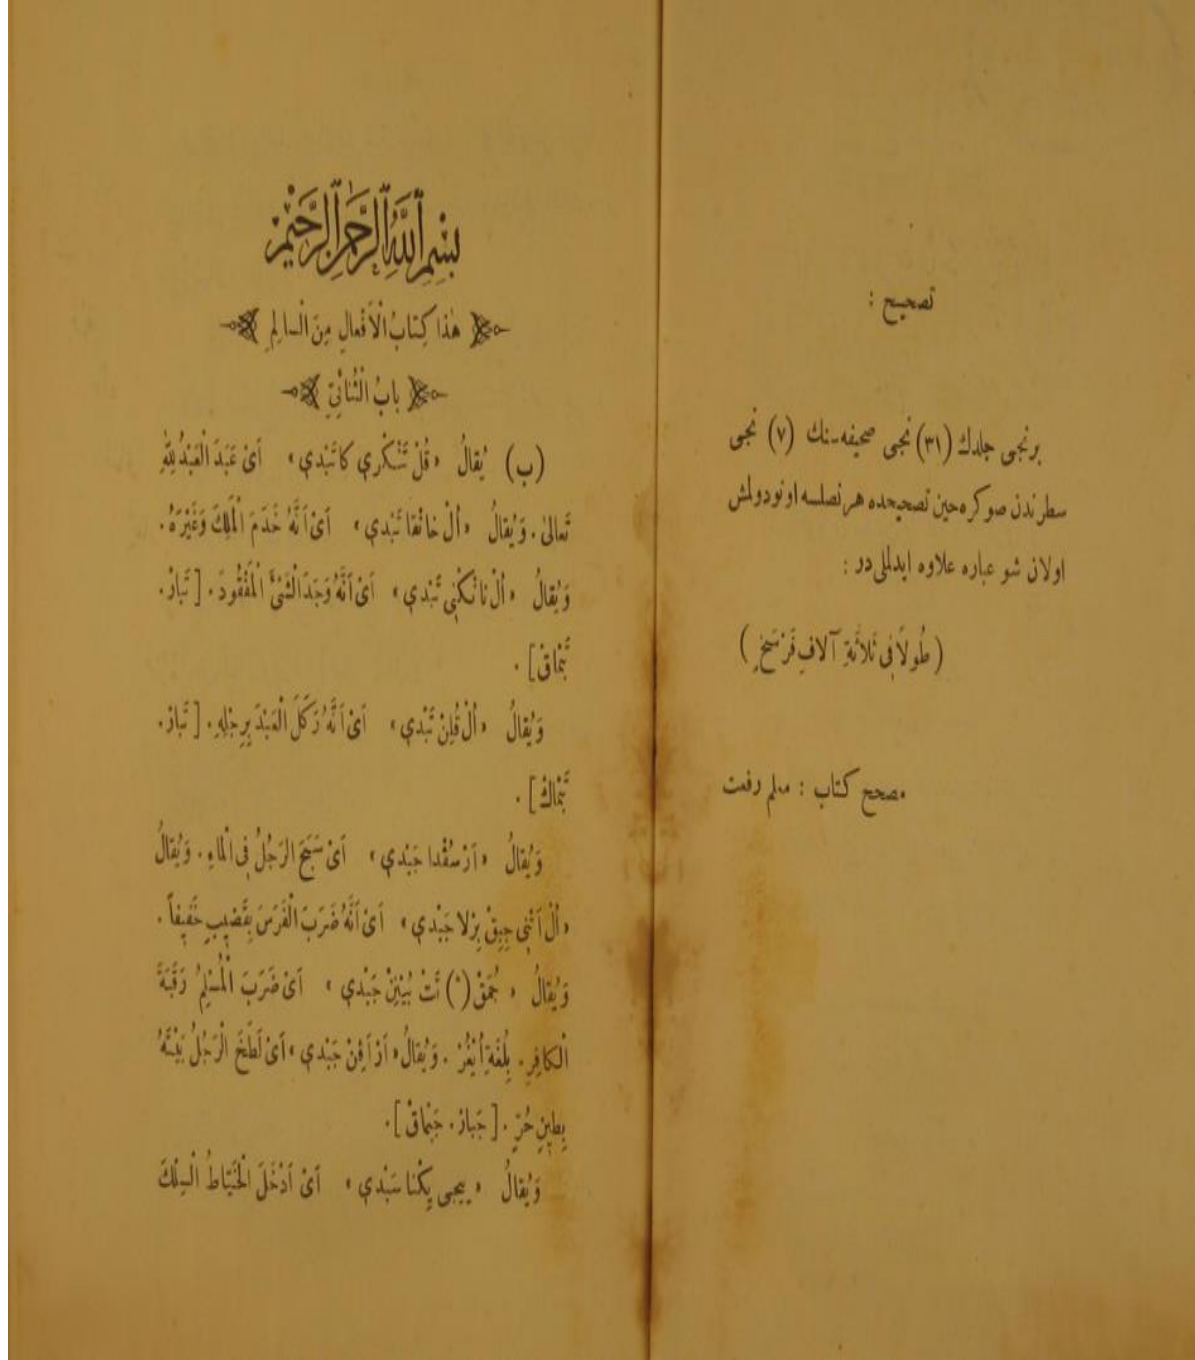 تصحيح :
برنجى جلدك (٣١) نجى صحيفه‌سنك (٧) نجى
سطرندن صوكره حين تصحيحده هر نصلسه اونودولمش
اولان شو عباره علاوه ايدلملى در :
(طُولاً فِى ثَلاثَةِ آلافِ فَرْسَخٍ)
مصحح كتاب : معلم رفعت
بِسْمِ ٱللَّهِ ٱلرَّحْمٰنِ ٱلرَّحِيْمِ
هٰذا كِتابُ الْأَفْعالِ مِنَ الْسالِمِ
بابُ الْثُنائِىِّ
(ب) يُقالُ «قُلْ تَنْكْرىِ كا تَبْدىِ» اَىْ عَبَدَ الْعَبْدُ لِلّٰهِ
تَعالىٰ. وَيُقالُ «اُلْ خانْقا تَبْدىِ» اَىْ اَنَّهُ خَدَمَ الْمَلِكَ وَغَيْرَهُ.
وَيُقالُ «اُلْ نانْكْنىِ تَبْدىِ» اَىْ اَنَّهُ وَجَدَ الْشَىْءَ الْمَفْقُودَ. [تَبارْ.
تَبْماقْ].
وَيُقالُ «اُلْ قُلِنْ تَبْدىِ» اَىْ اَنَّهُ رَكَلَ الْعَبْدَ بِرِجْلِهِ. [تَبارْ.
تَبْماكْ].
وَيُقالُ «اَرْ سُفْدا جَبْدىِ» اَىْ سَبَحَ الرَجُلُ فِى الْماءِ. وَيُقالُ
«اُلْ اَتْنىِ جِبِقْ بِرْلا جَبْدىِ» اَىْ اَنَّهُ ضَرَبَ الْفَرَسَ بِقَضِيبٍ خَفِيفاً.
وَيُقالُ « جُمَقْ (*) تَتْ بُيْنِنْ جَبْدىِ » اَىْ ضَرَبَ الْمُسْلِمُ رَقَبَةَ
الْكافِرِ. بِلُغَةِ اُيْغُرْ. وَيُقالُ «اَرْ اَفِنْ جَبْدىِ» اَىْ لَطَّخَ الْرَجُلُ بَيْتَهُ
بِطِينٍ حُرٍّ. [جَبارْ. جَبْماقْ].
وَيُقالُ «ييجى يِكْنا سَبْدىِ» اَىْ اَدْخَلَ الْخَيّاطُ الْسِلْكَ